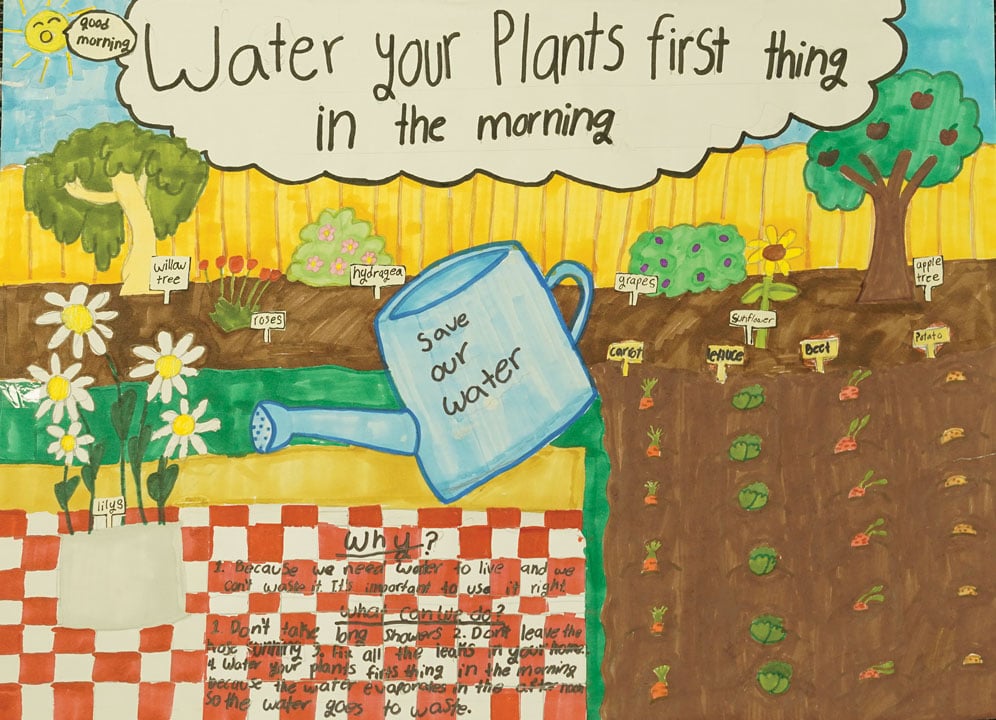 good
morning
Water your Plants first thing
in the morning
willow
tree
hydragea
roses
grapes
apple
tree
Sunflower
carot
lettuce
Beet
Potato
save
our
water
lilys
Why?
1. Because we need water to live and we
can't waste it. It's important to use it right
What can we do?
1. Don't take long showers 2. Don't leave the
hose running 3. Fix all the leaks in your home.
4. Water your plants firts thing in the morning
because the water evaporates in the after noon
So the water goes to waste.